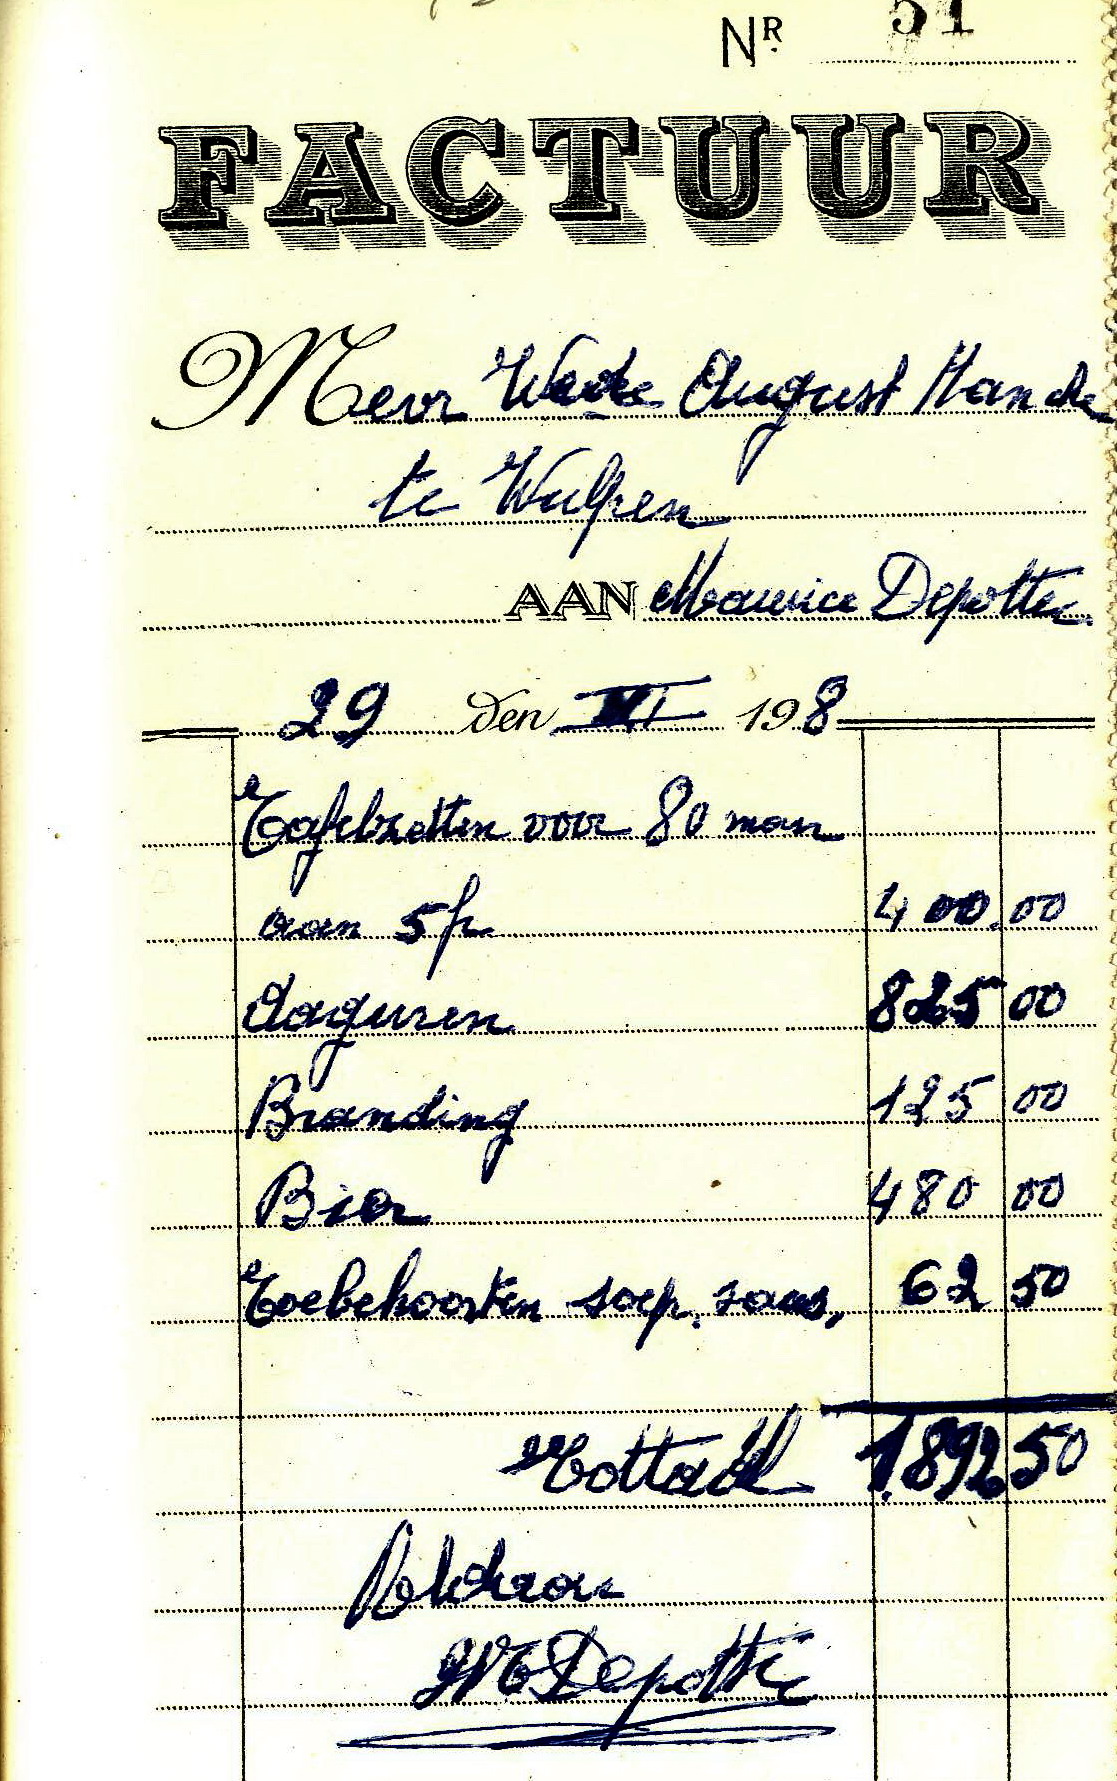 NR. 51
FACTUUR
Mevr Wede August Hande
te Wulpen
AAN Maurice Depotter
29 den XI 198
Tafelzetten voor 80 man
aan 5 fr 400.00
daguren 825 00
Branding 125 00
Bier 480 00
Toebehoorten soep. saus, 62 50
Tottaal 1.892 50
Voldaan
M Depotter